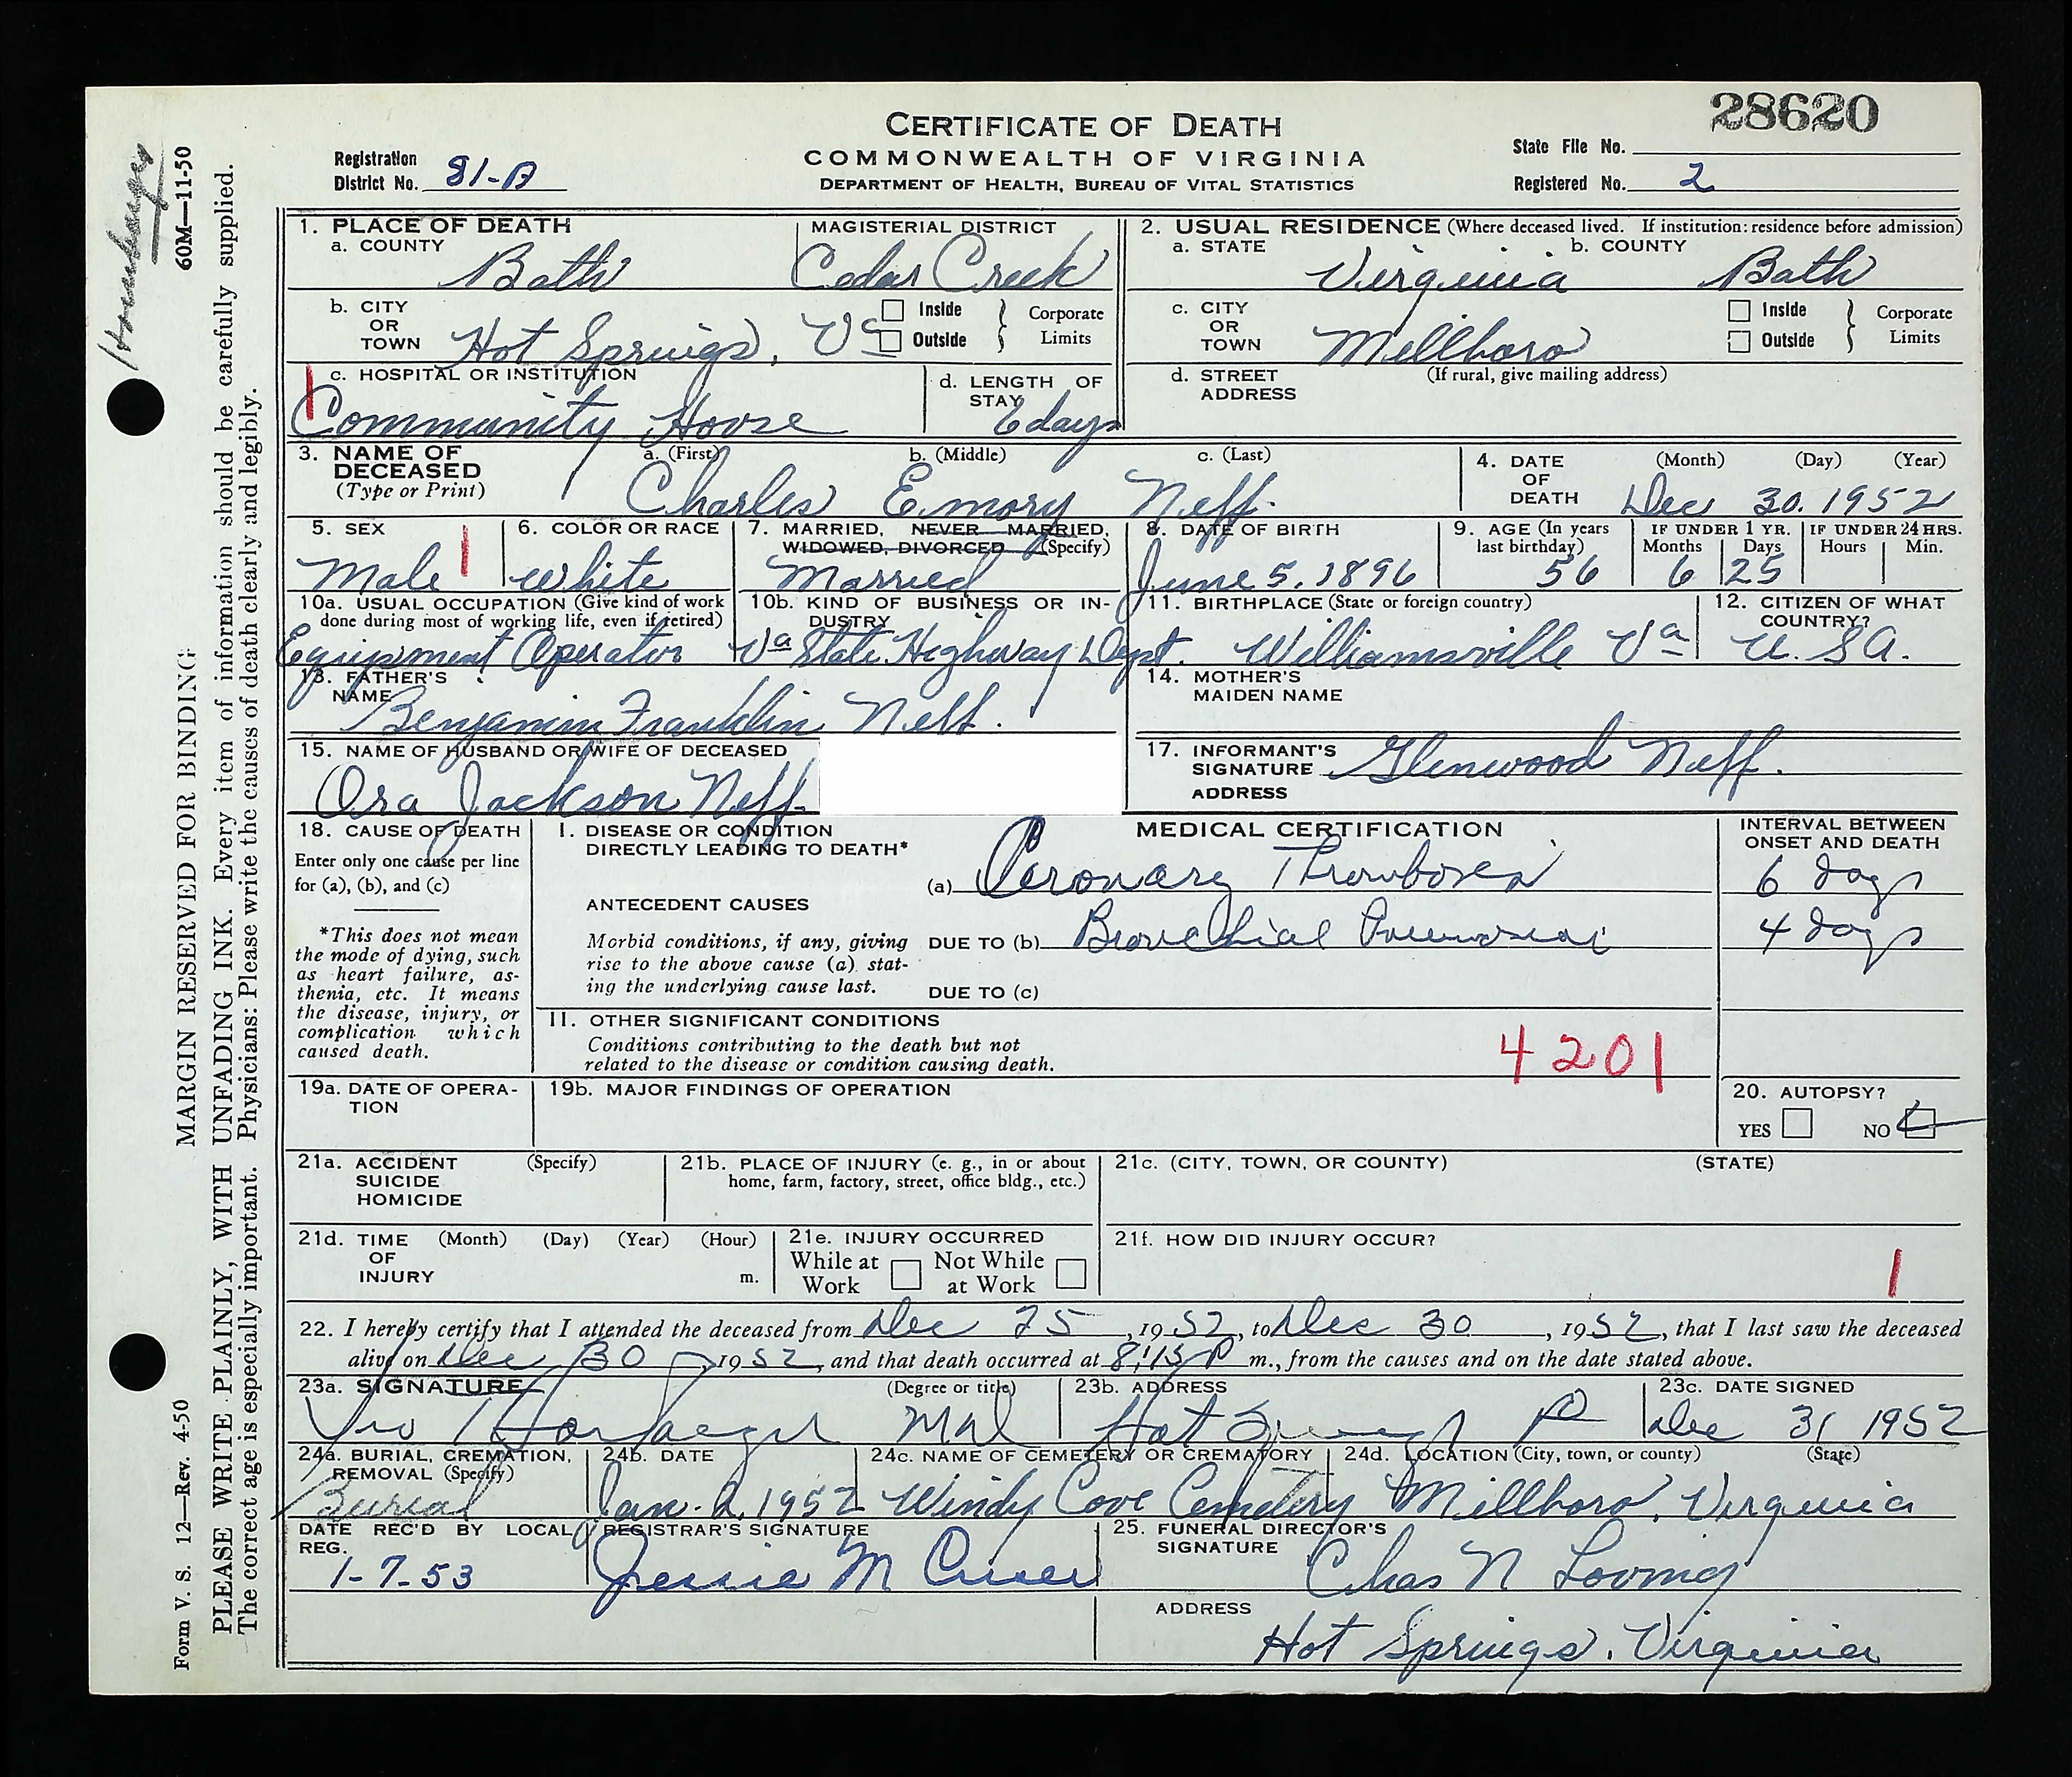 28620
CERTIFICATE OF DEATH
COMMONWEALTH OF VIRGINIA
DEPARTMENT OF HEALTH, BUREAU OF VITAL STATISTICS
Registration District No. 81-A
State File No.
Registered No. 2
60M—11-50
MARGIN RESERVED FOR BINDING
PLEASE WRITE PLAINLY, WITH UNFADING INK. Every item of information should be carefully supplied.
The correct age is especially important. Physicians: Please write the causes of death clearly and legibly.
Form V. S. 12—Rev. 4-50
1. PLACE OF DEATH
a. COUNTY Bath
MAGISTERIAL DISTRICT Cedar Creek
b. CITY OR TOWN Hot Springs, Va
Inside Outside } Corporate Limits
1
c. HOSPITAL OR INSTITUTION Community House
d. LENGTH OF STAY 6 days
2. USUAL RESIDENCE (Where deceased lived. If institution: residence before admission)
a. STATE Virginia b. COUNTY Bath
c. CITY OR TOWN Millboro
Inside Outside } Corporate Limits
d. STREET ADDRESS (If rural, give mailing address)
3. NAME OF DECEASED (Type or Print)
a. (First) b. (Middle) c. (Last)
Charles Emory Neff.
4. DATE OF DEATH (Month) (Day) (Year)
Dec 30. 1952
5. SEX Male 1
6. COLOR OR RACE White
7. MARRIED, NEVER MARRIED, WIDOWED, DIVORCED (Specify) Married
8. DATE OF BIRTH June 5, 1896
9. AGE (In years last birthday) 56
IF UNDER 1 YR. Months 6 Days 25
IF UNDER 24 HRS. Hours Min.
10a. USUAL OCCUPATION (Give kind of work done during most of working life, even if retired) Equipment Operator
10b. KIND OF BUSINESS OR INDUSTRY Va State Highway Dept.
11. BIRTHPLACE (State or foreign country) Williamsville Va
12. CITIZEN OF WHAT COUNTRY? U. S A.
13. FATHER'S NAME Benjamin Franklin Neff.
14. MOTHER'S MAIDEN NAME
15. NAME OF HUSBAND OR WIFE OF DECEASED Ora Jackson Neff.
17. INFORMANT'S SIGNATURE Glenwood Neff.
ADDRESS
18. CAUSE OF DEATH
Enter only one cause per line for (a), (b), and (c)
*This does not mean the mode of dying, such as heart failure, asthenia, etc. It means the disease, injury, or complication which caused death.
MEDICAL CERTIFICATION
INTERVAL BETWEEN ONSET AND DEATH
I. DISEASE OR CONDITION DIRECTLY LEADING TO DEATH*
(a) Coronary Thrombosis 6 days
ANTECEDENT CAUSES
Morbid conditions, if any, giving rise to the above cause (a) stating the underlying cause last.
DUE TO (b) Bronchial Pneumonia 4 days
DUE TO (c)
II. OTHER SIGNIFICANT CONDITIONS
Conditions contributing to the death but not related to the disease or condition causing death.
4201
19a. DATE OF OPERATION
19b. MAJOR FINDINGS OF OPERATION
20. AUTOPSY?
YES NO
21a. ACCIDENT SUICIDE HOMICIDE (Specify)
21b. PLACE OF INJURY (e. g., in or about home, farm, factory, street, office bldg., etc.)
21c. (CITY, TOWN, OR COUNTY) (STATE)
21d. TIME OF INJURY (Month) (Day) (Year) (Hour) m.
21e. INJURY OCCURRED
While at Work Not While at Work
21f. HOW DID INJURY OCCUR?
1
22. I hereby certify that I attended the deceased from Dec 25, 1952, to Dec 30, 1952, that I last saw the deceased
alive on Dec 30, 1952, and that death occurred at 8:15 P m., from the causes and on the date stated above.
23a. SIGNATURE (Degree or title)
23b. ADDRESS Hot Springs
23c. DATE SIGNED Dec 31 1952
24a. BURIAL, CREMATION, REMOVAL (Specify) Burial
24b. DATE Jan. 2, 1952
24c. NAME OF CEMETERY OR CREMATORY Windy Cove Cemetery
24d. LOCATION (City, town, or county) (State) Millboro, Virginia
DATE REC'D BY LOCAL REG. 1-7-53
REGISTRAR'S SIGNATURE Jessie M
25. FUNERAL DIRECTOR'S SIGNATURE Chas N Loving
ADDRESS Hot Springs, Virginia